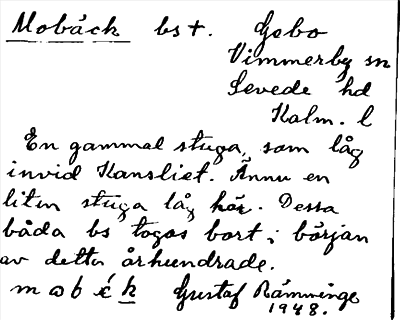 Mobäck bs +. Gebo
Vimmerby sn
Sevede hd
Kalm. l
En gammal stuga, som låg
invid Kansliet. Ännu en
liten stuga låg här. Dessa
båda bs togos bort i början
av detta århundrade.
Gustaf Rämninge
1948.